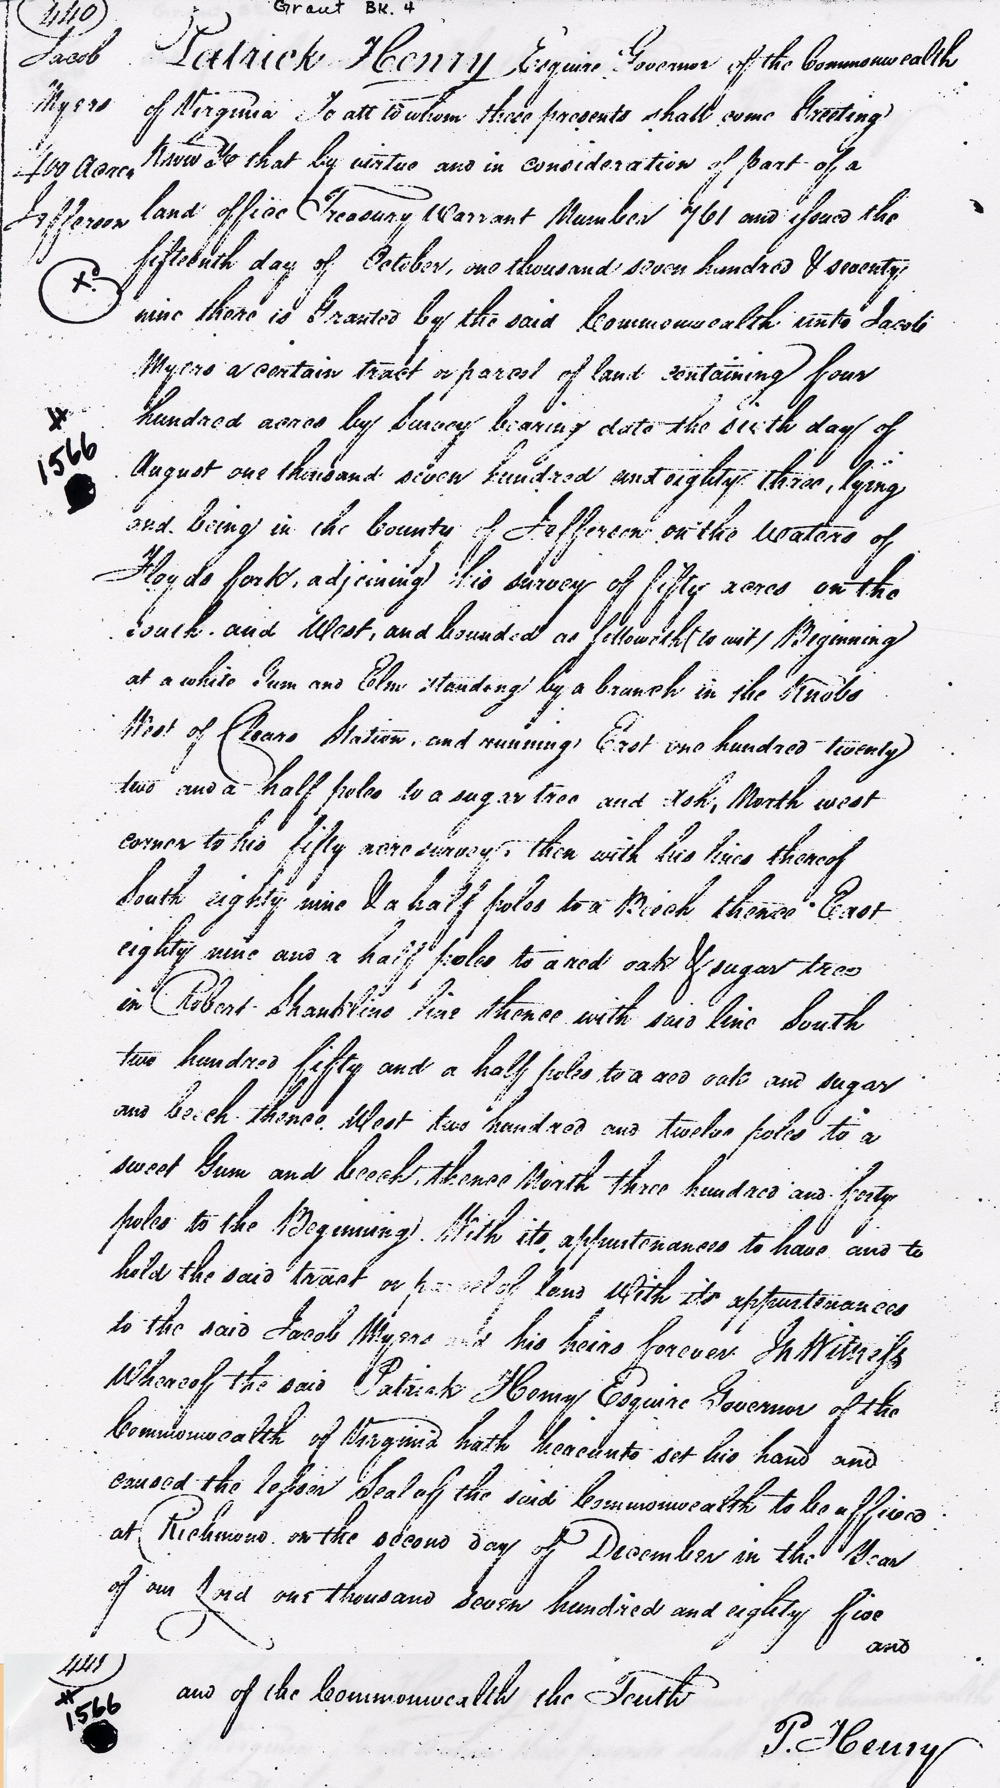 Grant BK. 4
440
Jacob
Myers
400 Acres
Jefferson
Xd
# 1566
Patrick Henry Esquire Governor of the Commonwealth
of Virginia To all to whom these presents shall come Greeting
Know Ye that by virtue and in consideration of part of a
land office Treasury Warrant Number 761 and issued the
fifteenth day of October, one thousand seven hundred & seventy
nine there is Granted by the said Commonwealth unto Jacob
Myers a certain tract or parcel of land containing four
hundred acres by Survey bearing date the sixth day of
August one thousand seven hundred and eighty three, lying
and being in the County of Jefferson on the Waters of
Floyds fork, adjoining his survey of fifty acres on the
south and West, and bounded as followeth (to wit) Beginning
at a white Gum and Elm standing by a branch in the Knobs
West of Clears Station, and running East one hundred twenty
two and a half poles to a sugar tree and Ash, North west
corner to his fifty acre survey, then with his lines thereof
South eighty nine & a half poles to a Beech thence East
eighty nine and a half poles to a red oak & sugar tree
in Robert Shanklins line thence with said line South
two hundred fifty and a half poles to a red oak and sugar
and beech thence West two hundred and twelve poles to a
sweet Gum and beech, thence North three hundred and forty
poles to the Beginning. With its appurtenances to have and to
hold the said tract or parcel of land With its appurtenances
to the said Jacob Myers and his heirs forever In Witness
Whereof the said Patrick Henry Esquire Governor of the
Commonwealth of Virginia hath hereunto set his hand and
caused the lesser Seal of the said Commonwealth to be affixed
at Richmond on the second day of December in the Year
of our Lord one thousand seven hundred and eighty five
and
441
# 1566
and of the Commonwealth the Tenth
P. Henry